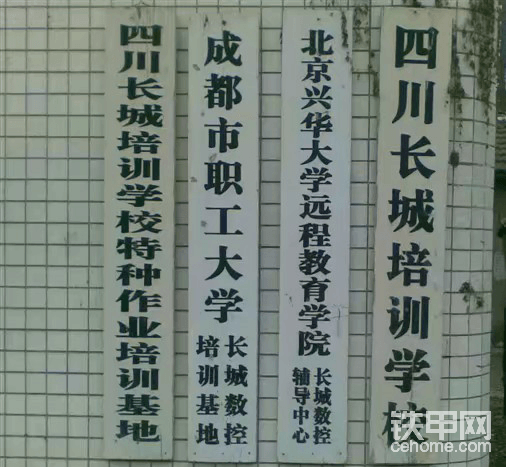 四川长城培训学校
北京兴华大学远程教育学院
长城数控
辅导中心
成都市职工大学
长城数控
培训基地
四川长城培训学校特种作业培训基地
铁甲网
cehome.com